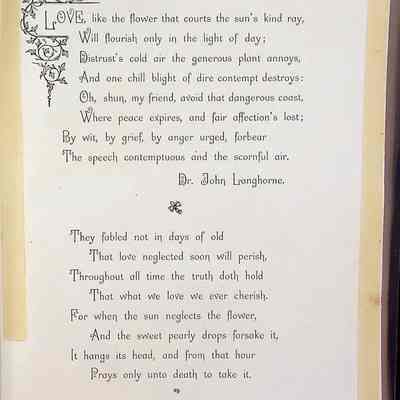 LOVE, like the flower that courts the sun's kind ray,
Will flourish only in the light of day;
Distrust's cold air the generous plant annoys,
And one chill blight of dire contempt destroys:
Oh, shun, my friend, avoid that dangerous coast,
Where peace expires, and fair affection's lost;
By wit, by grief, by anger urged, forbear
The speech contemptuous and the scornful air.
Dr. John Langhorne.
They fabled not in days of old
That love neglected soon will perish,
Throughout all time the truth doth hold
That what we love we ever cherish.
For when the sun neglects the flower,
And the sweet pearly drops forsake it,
It hangs its head, and from that hour
Prays only unto death to take it.